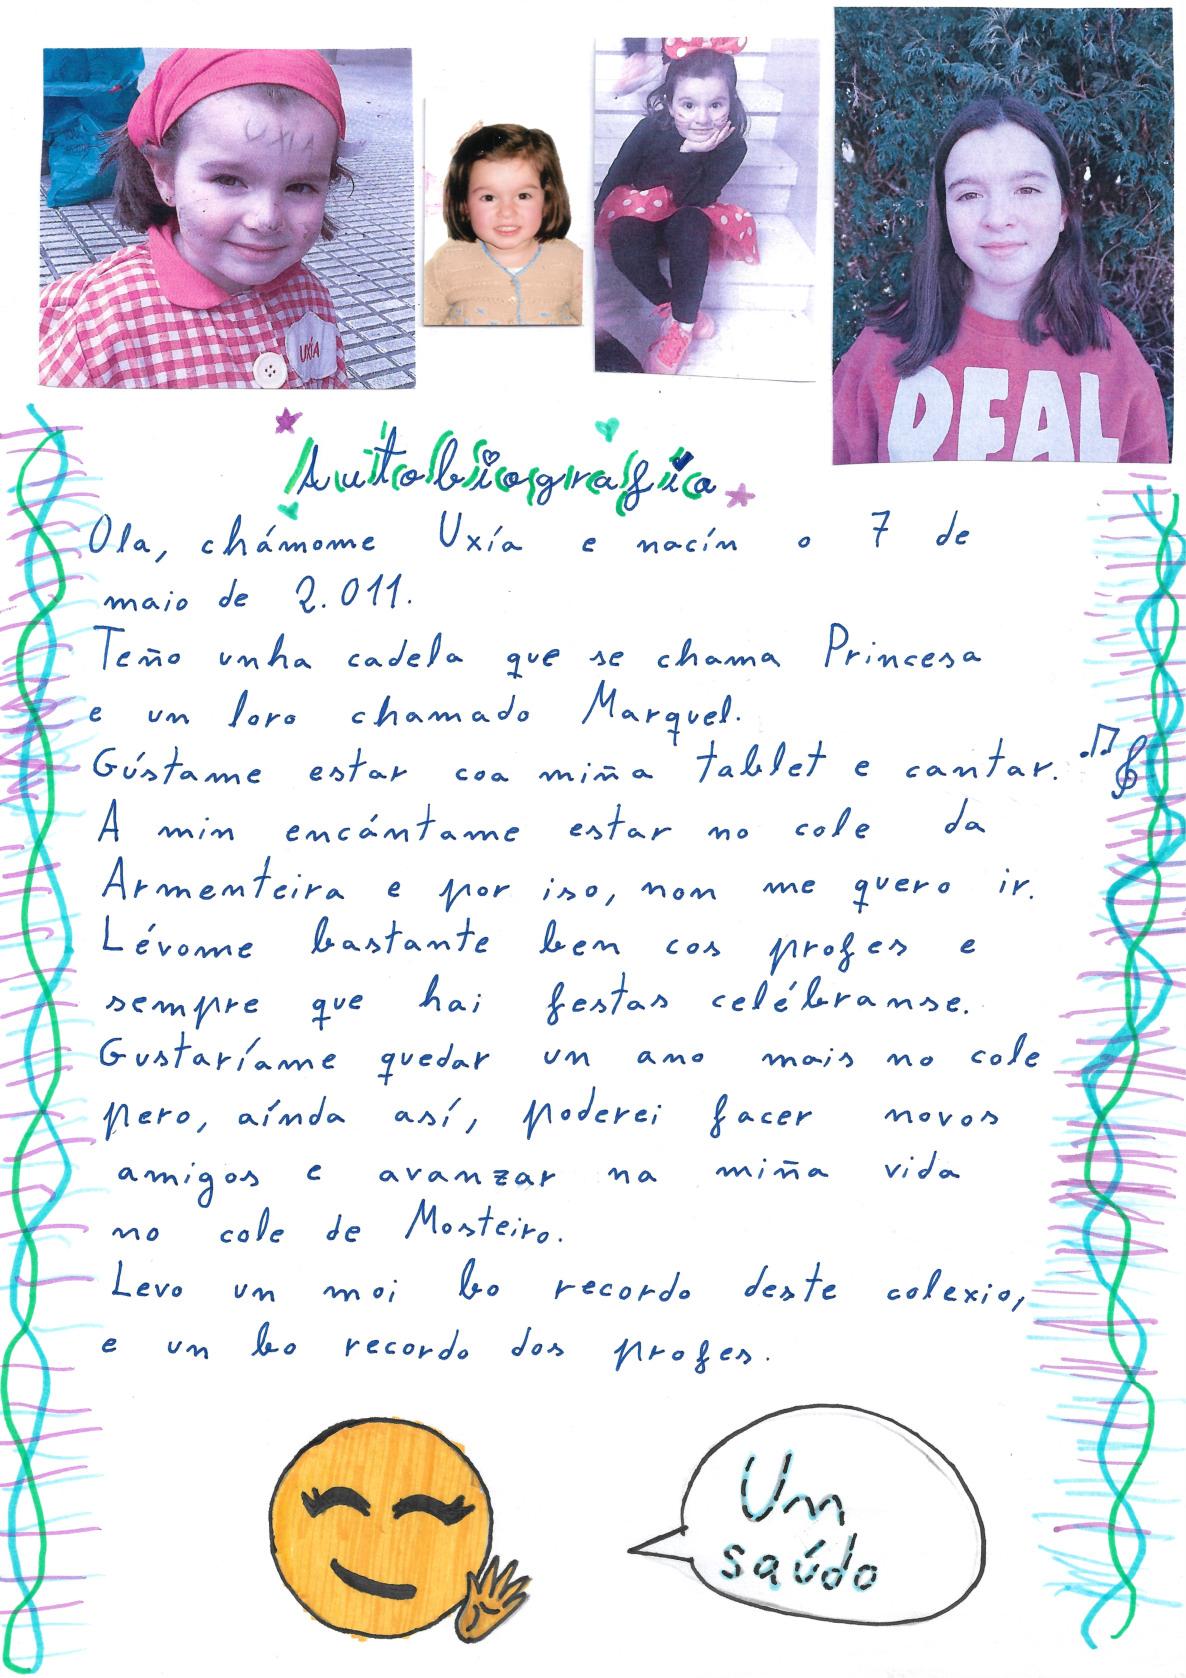 UXIA
UXÍA
REAL
Autobiografía
Ola, chámome Uxía e nacín o 7 de
maio de 2.011.
Teño unha cadela que se chama Princesa
e un loro chamado Marquel.
Gústame estar coa miña tablet e cantar.
A min encántame estar no cole da
Armenteira e por iso, non me quero ir.
Lévome bastante ben cos profes e
sempre que hai festas celébranse.
Gustaríame quedar un ano mais no cole
pero, aínda así, poderei facer novos
amigos e avanzar na miña vida
no cole de Mosteiro.
Levo un moi bo recordo deste colexio,
e un bo recordo dos profes.
Un
saúdo